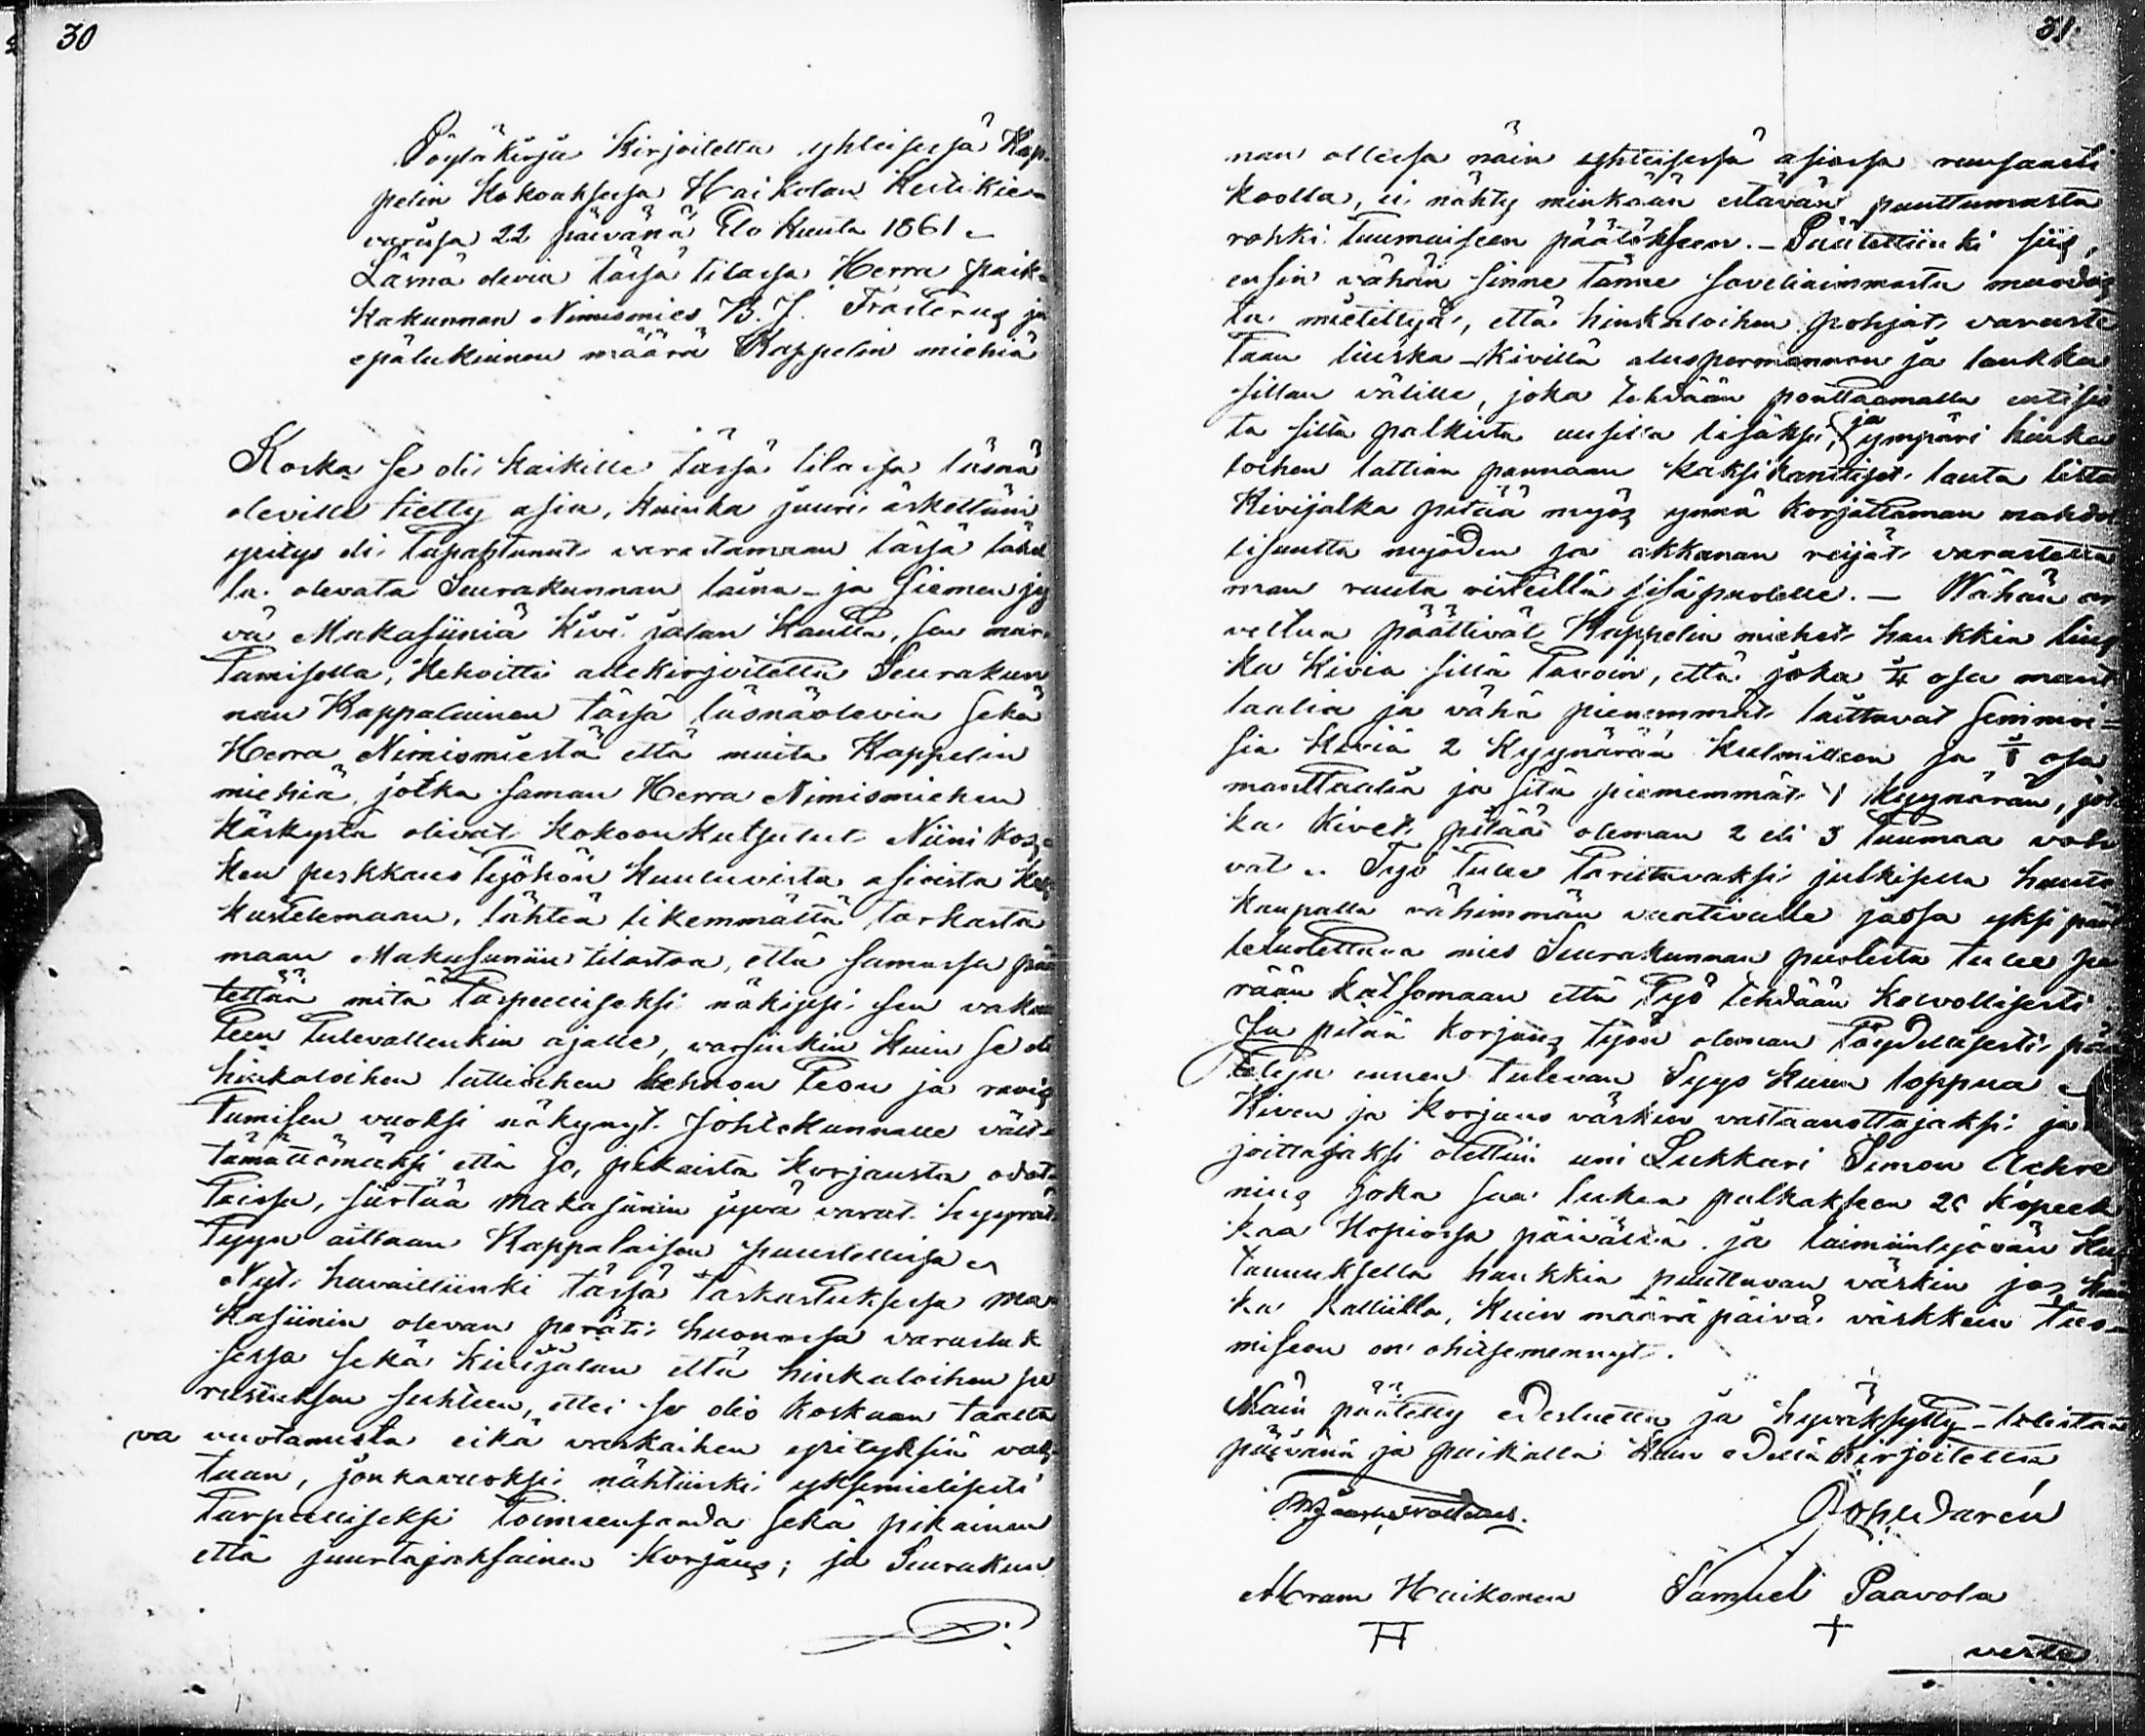 30
Pöytäkirja Kirjoitettu yhteisesä Kap-
pelin Kokouksesa Haikolan Kestikie-
varisa 22 päivänä Elo Kuuta 1861 –
Läsnä olevia tässä tilassa Herra paik-
kakunnan Nimismies B. J. Frosterus ja
epälukuinen määrä Kappelin miehiä
Koska se oli kaikille tässä tilassa läsnä
oleville tietty asia, kuinka juuri äskettäin
yritys oli tapahtunut varastamaan tässä lähel
lä olevata Seurakunnan laina- ja Siemen jy
vä Makasiiniä Kivi jalan kautta, sen mur-
tamisella, Kehoitti allekirjoitettu Seurakun
nan Kappalainen tässä läsnäolevia sekä
Herra Nimismiestä että muita Kappelin
miehiä, jotka saman Herra Nimismiehen
käskystä olivat kokoonkutsutut Niini kos-
ken perkkaus työhön kuuluvista asioista Kes
kustelemaan, lähteä likemmältä tarkasta
maan Makasiinin tilastoa, että samassa pää
tettää mitä tarpeelliseksi näkisi sen vakuu
teen tulevallenkin ajalle, varsinkin kuin se oli
hinkaloihen lattioihen huonon teon ja ravis
tumisen vuoksi näkynyt Johtokunnalle vält-
tämättömäksi että jo, pikaista korjausta odot-
taissa, siirtää Makasiinin jyvä varat hyyrät
tyyn aittaan Kappalaisen puustellissa –
Nyt havaittiinki tässä tarkastuksessa Ma-
kasiinin olevan peräti huonossa varustuk
sessa sekä kivijalan että hinkaloihen pe
rustuksen suhteen, ettei se olis koskaan taatta
va vuotamista eikä varkaihen yrityksiä vas-
taan, jonkavuoksi nähtiinki yksimielisesti
tarpeelliseksi toimeensaada sekä pikainen
että juurtajaksainen korjaus; ja Seurakun
31.
nan ollessa näin yhteisessä asiassa runsaasti
koolla, ei nähty minkään estävän puuttumasta
rohki tuumaiseen päätökseen. – Päätettiinki siis,
ensin vähän sinne tänne soveliaimmasta muodos
ta mietittyä, että hinkaloihen pohjat varuste
taan liuska-kivillä aluspermannon ja laukka
sillan välille, joka tehdään ponttaamalla entisis
tä silta palkista uusilla lisäksi, ja ympäri hinka
loihen lattian pannaan kaksikanttiset lauta listat
Kivijalka pitää myös ynnä korjattaman mahdol
lisuutta myöden ja akkunan reijät varustetta
man rauta risteillä sisäpuolelle. – Vähän ar
veltua päättivät Kappelin miehet hankkia lius
ka kiviä sillä tavoin, että joka 1/4 osa mant
taalia ja vähä pienemmät laittavat semmoi=
sia kiviä 2 Kyynärää kulmilleen ja 1/8 osa
manttaalia ja sitä piemmemmät 1 kyynärän, jot
ka kivet pitää oleman 2 eli 3 tuumaa vah
vat .. Työ tulee toritettavaksi julkisella huuto
kaupalla vähimmän vaativalle jossa yksi pääl
leluotettava mies Seurakunnan puolesta tulee pe
rään katsomaan että Työ tehdään kelvollisesti
Ja pitää korjaus työn oleman täydellisesti pää
tetty ennen tulevan Syys kuun loppua –
Kiven ja korjaus värkin vastaanottajaksi ja
joittajaksi otettiin uni Lukkari Simon Achre
nius joka saa lukea palkakseen 20 kopeek
kaa Hopiossa päivältä ja laiminlyövän kus
tannuksella hankkia puuttuvan värkin jos kuin
ka kalliilla, kuin määrä päivä värkkein tuo-
miseen on ohitsemennyt.
Näin päätetty edesluettu ja hyväksytty – todistaa
päivänä ja paikalla kuin edellä kirjoitettu
Abram Haikonen Samuel Paavola
+
verte